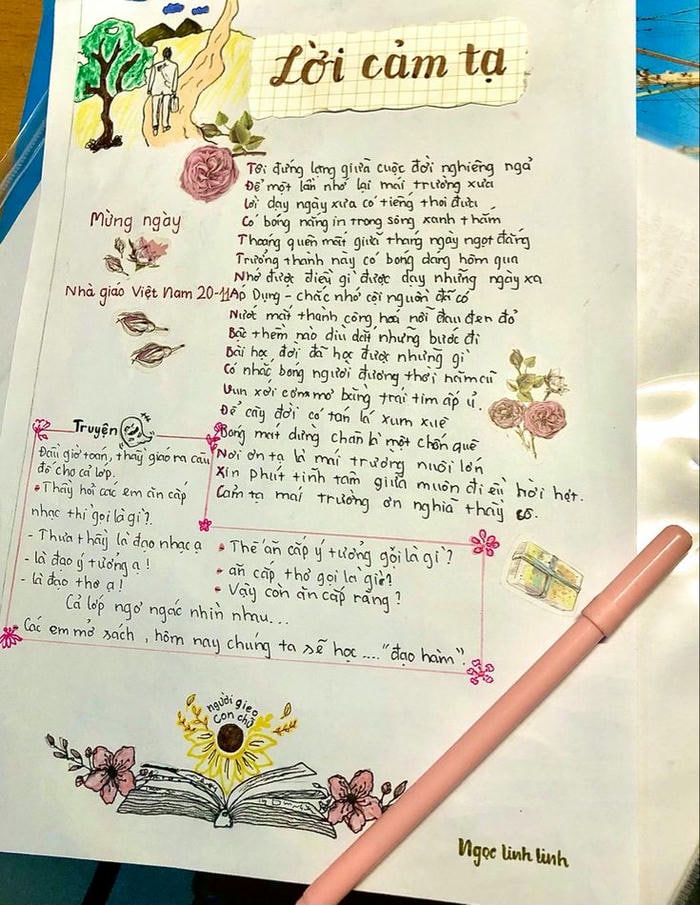 Lời cảm tạ
Tôi đứng lặng giữa cuộc đời nghiêng ngả
Để một lần nhớ lại mái trường xưa
Lời dạy ngày xưa có tiếng thoi đưa
Có bóng nắng in trong sông xanh thắm
Thoáng quên mất giữa tháng ngày ngọt đắng
Trưởng thành này có bóng dáng hôm qua
Nhớ được điều gì được dạy những ngày xa
Áp Dụng - chắc nhớ cội nguồn đã có
Nước mắt thành công hoá nỗi đau đen đỏ
Bậc thềm nào dìu dắt những bước đi
Bài học đời đã học được những gì
Có nhắc bóng người đương thời năm cũ
Vun xới cơn mơ bằng trái tim ấp ủ.
Để cây đời có tán lá xum xuê
Bóng mát dừng chân là một chốn quê
Nơi ơn tạ là mái trường nuôi lớn
Xin phút tĩnh tâm giữa muôn điều hời hợt.
Cảm tạ mái trường ơn nghĩa thầy cô.
Mừng ngày
Nhà giáo Việt Nam 20-11
Truyện
Đầu giờ toán, thầy giáo ra câu
đố cho cả lớp.
Thầy hỏi các em ăn cắp
nhạc thì gọi là gì?.
- Thưa thầy là đạo nhạc ạ
- là đạo ý tưởng ạ!
- là đạo thơ ạ!
Thế ăn cắp ý tưởng gọi là gì?
ăn cắp thơ gọi là gì?
Vậy còn ăn cắp răng?
Cả lớp ngơ ngác nhìn nhau...
Các em mở sách, hôm nay chúng ta sẽ học ...."đạo hàm".
người gieo
con chữ
Ngọc linh linh